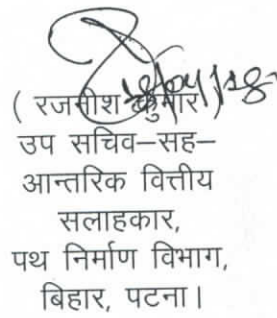 ( रजनीश कुमार )
उप सचिव–सह–
आन्तरिक वित्तीय
सलाहकार,
पथ निर्माण विभाग,
बिहार, पटना।